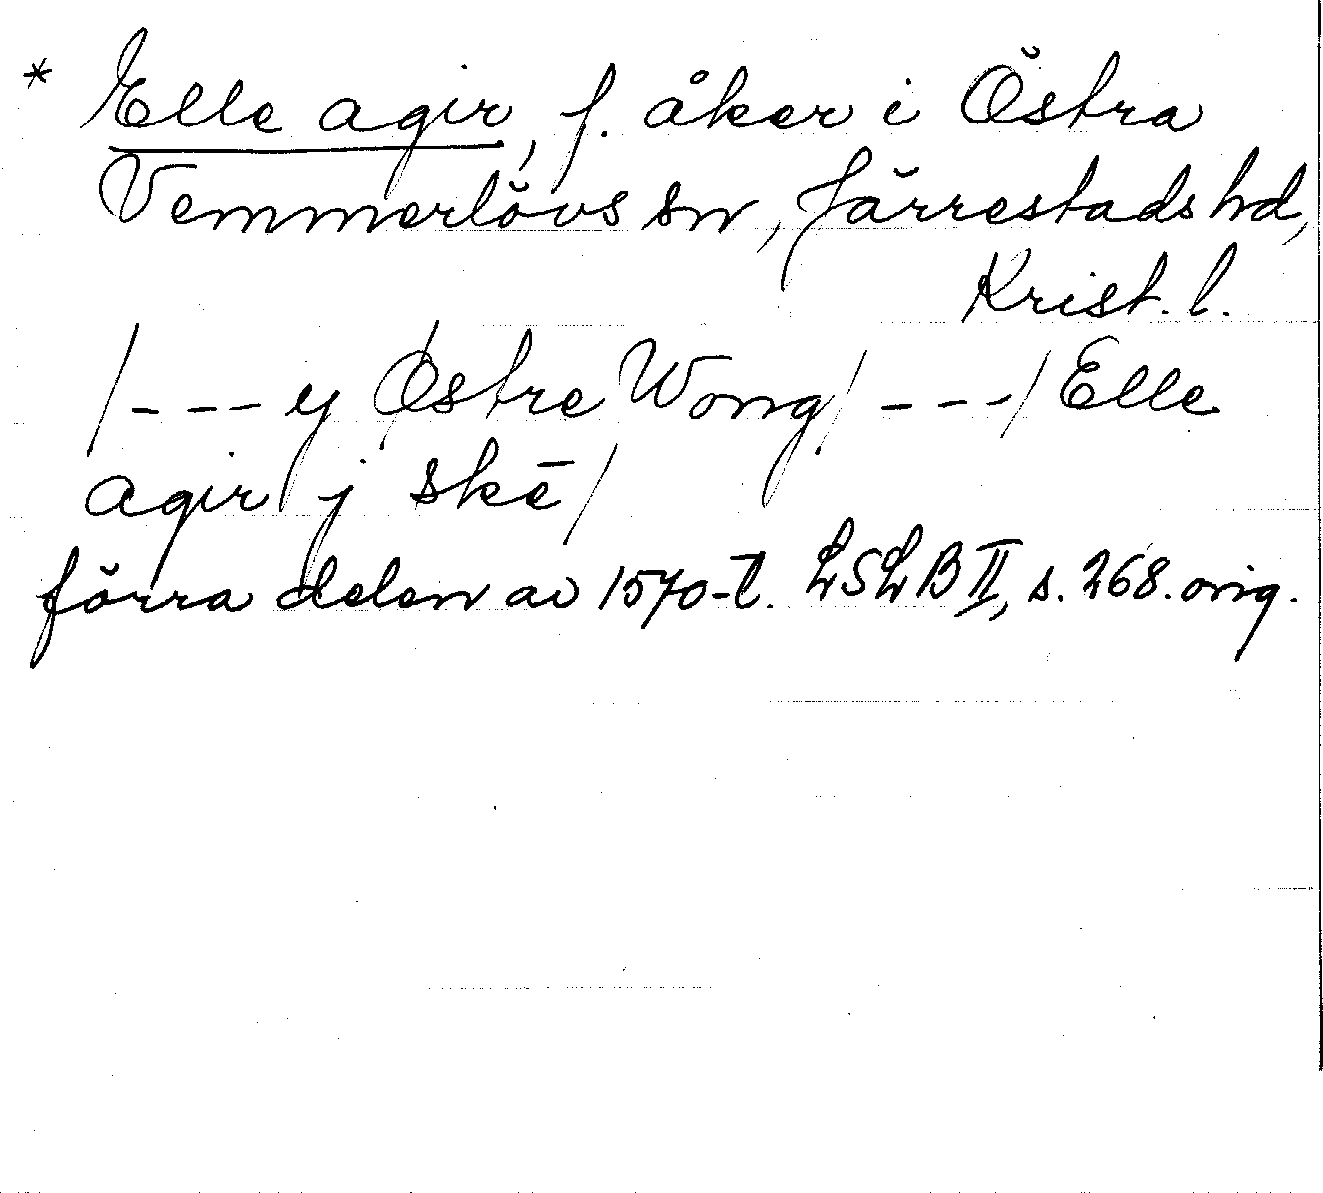 * Elle agir, f. åker i Östra
Vemmerlövs sn, Järrestads hd,
Krist. l.
/--- y Østre Wong/ ---/ Elle
agir j skē/
förra delen av 1570-t. LSLB II, s. 268. orig.